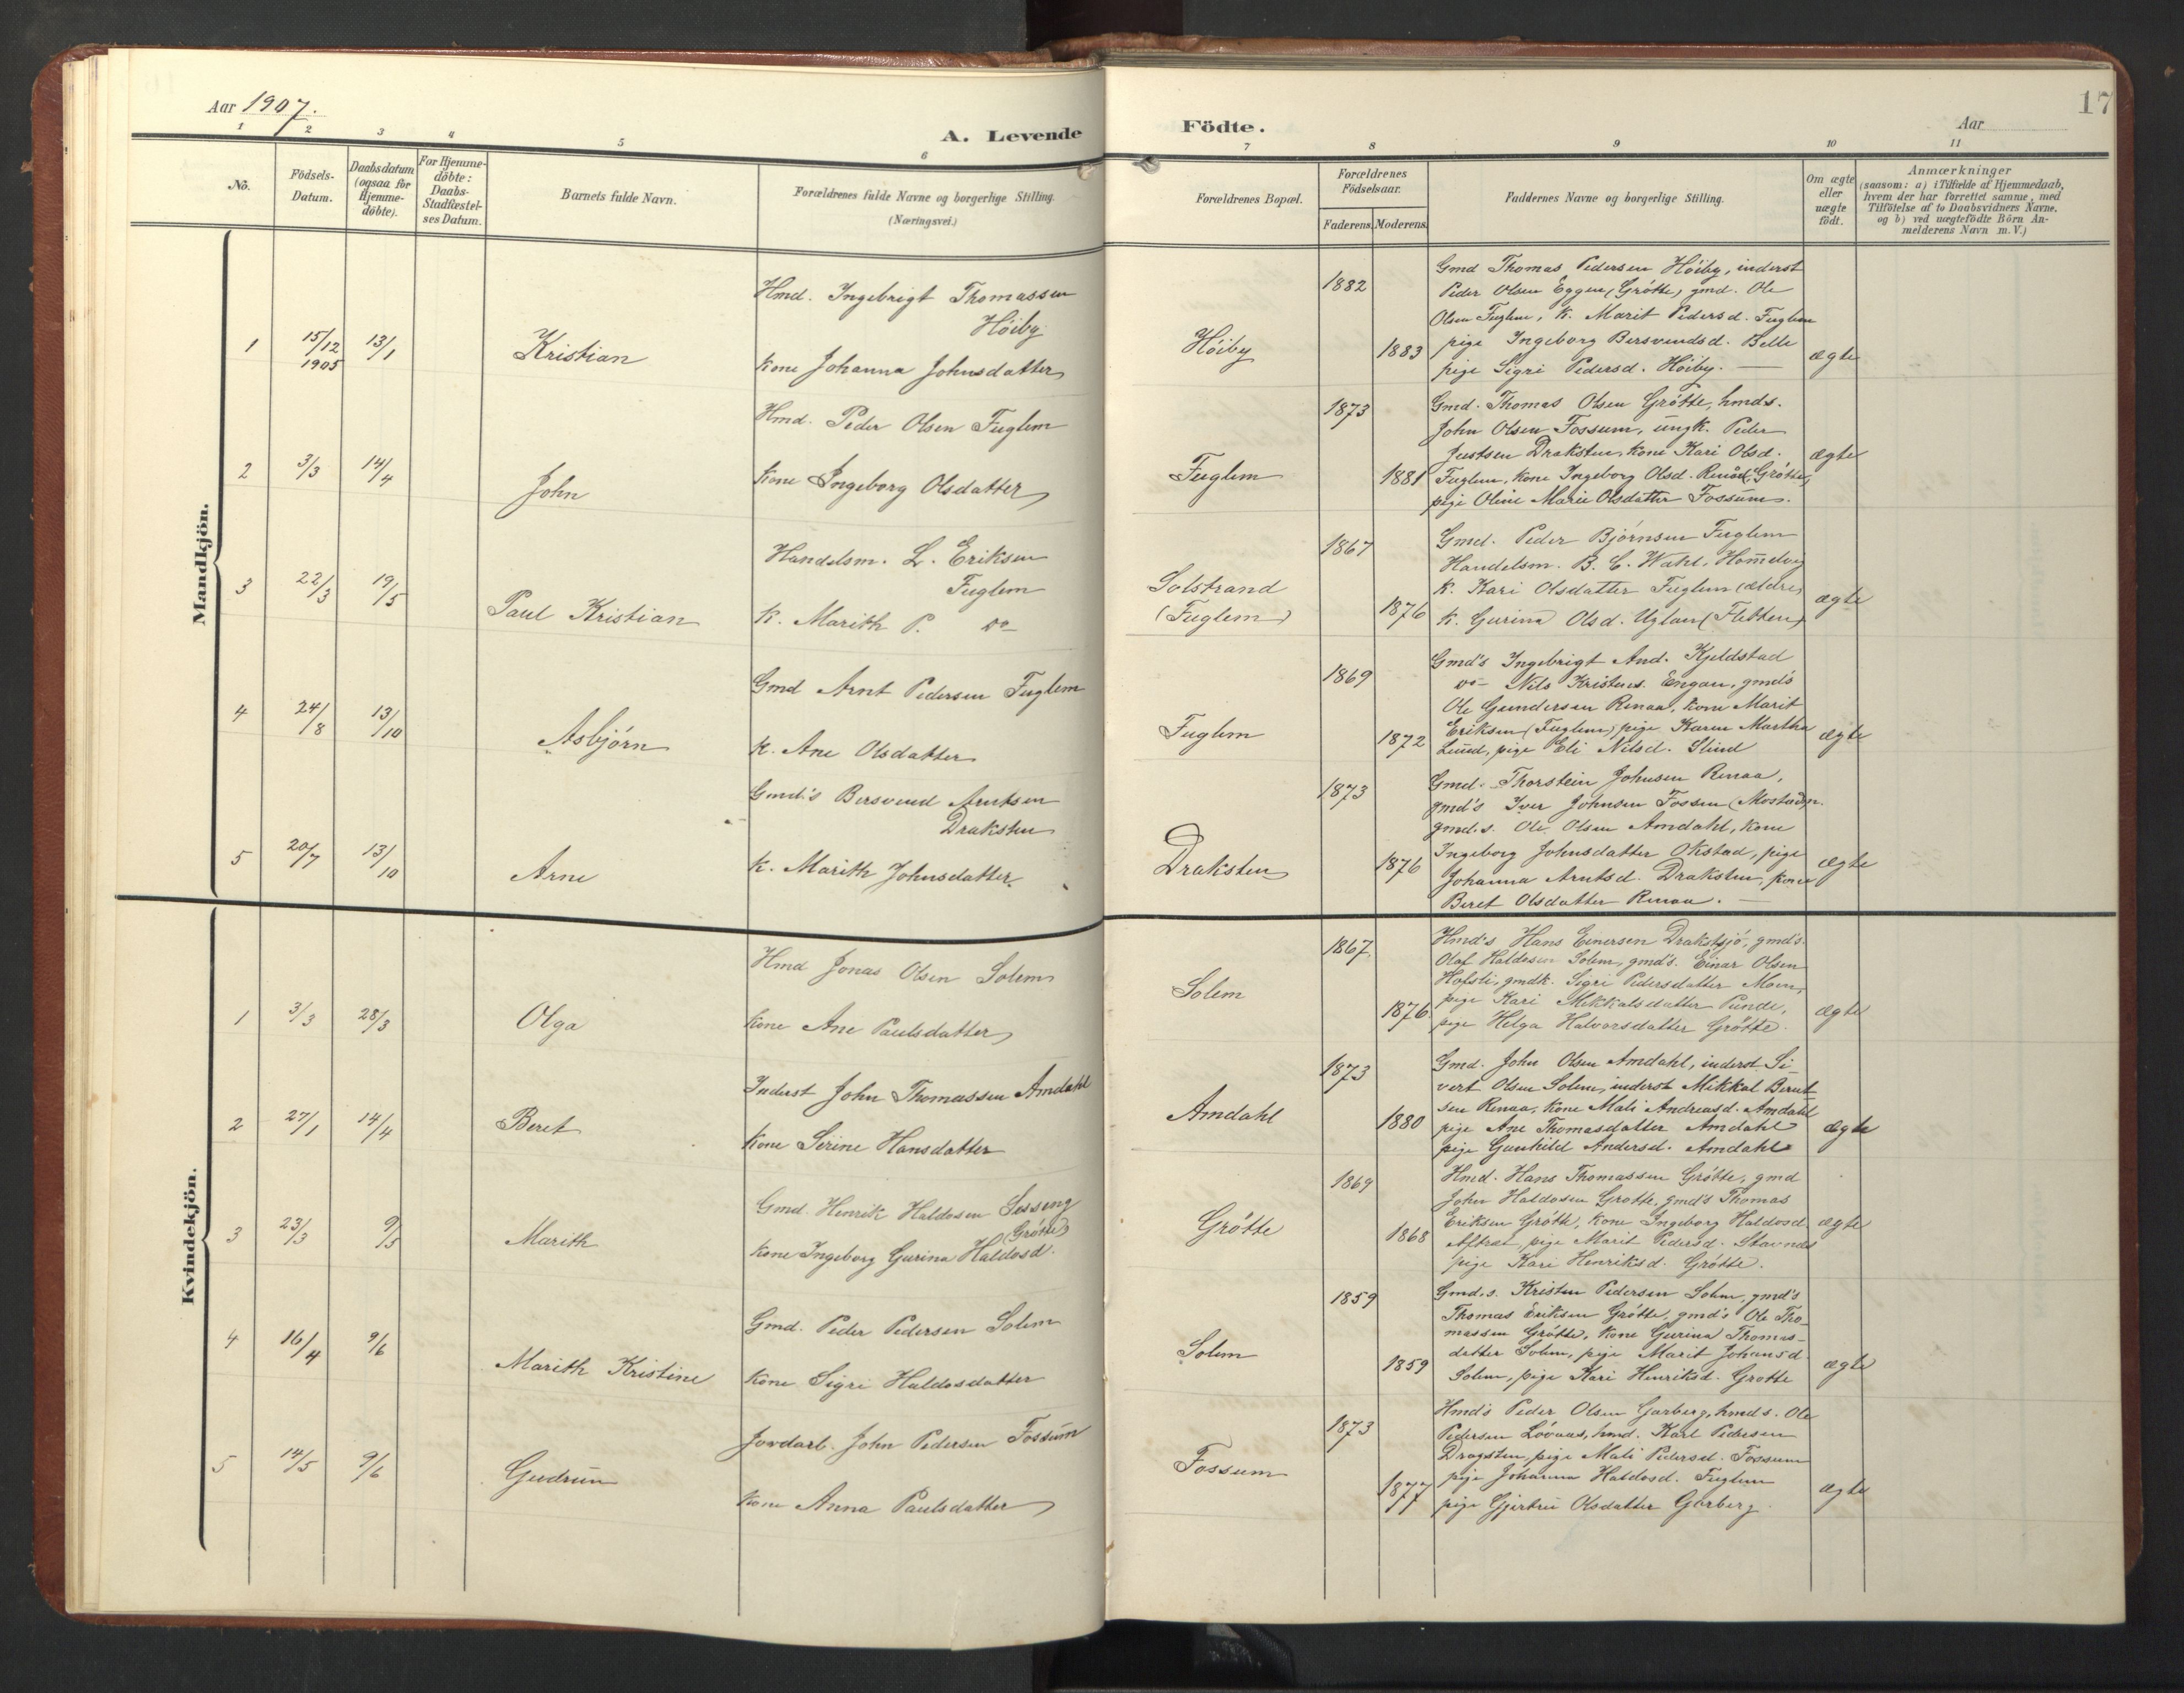 Aar 1907.
A. Levende
Födte.
Aar
17
1 2 3 4 5 6 7 8 9 10 11
No.
Födsels-
Datum.
Daabsdatum
(ogsaa for
Hjemme-
döbte).
For Hjemme-
döbte:
Daabs-
Stadfæstel-
ses Datum.
Barnets fulde Navn.
Forældrenes fulde Navne og borgerlige Stilling.
(Næringsvei.)
Forældrenes Bopæl.
Forældrenes
Födselsaar.
Faderens. Moderens.
Faddernes Navne og borgerlige Stilling.
Om ægte
eller
uægte
födt.
Anmærkninger
(saasom: a) i Tilfælde af Hjemmedaab,
hvem der har forrettet samme, med
Tilföielse af to Daabsvidners Navne,
og b) ved uægtefödte Börn An-
melderens Navn m. V.)
Mandkjön.
1 15/12 1905 13/1 Kristian
Hmd. Ingebrigt Thomassen
Höiby
kone Johanna Johnsdatter
Höiby 1882 1883
Gmd Thomas Pedersen Höiby, inderst
Peder Olsen Eggen (Grötte) gmd. Ole
Olsen Fuglem, k. Marit Pedersd. Fuglem
pige Ingeborg Bersvendsd. Belle
pige Sigri Pedersd. Höiby.
ægte
2 3/3 14/4 John
Hmd. Peder Olsen Fuglem
kone Ingeborg Olsdatter
Fuglem 1873 1881
Gmd. Thomas Olsen Grötte, hmds.
John Olsen Fossum, ungk. Peder
Justsen Draksten, kone Kari Olsd.
Fuglem, kone Ingeborg Olsd. Renåd (Grötte)
pige Oline Marie Olsdatter Fossum.
ægte
3 22/3 19/5 Paul Kristian
Handelsm. L. Eriksen
Fuglem
k. Marith P. do
Solstrand
(Fuglem) 1867 1876
Gmd. Peder Bjørnsen Fuglem
Handelsm. B. C. Wahl, Hommelvig
k. Kari Olsdatter Fuglem (ældre)
k. Gurina Olsd. Uglan (Fletten)
ægte
4 24/8 13/10 Asbjörn
Gmd Arnt Pedersen Fuglem
k. Ane Olsdatter
Fuglem 1869 1872
Gmd's Ingebrigt And. Kjeldstad
do Nils Kristens. Engan, gmds
Ole Gundersen Renaa, kone Marit
Eriksen (Fuglem) pige Karen Martha
Lund, pige Eli Nilsd. Slind
ægte
5 20/7 13/10 Arne
Gmd's Bersvend Arntsen
Draksten
k. Marith Johnsdatter
Draksten 1873 1876
Gmd. Thorstein Johnsen Renaa,
gmd's Iver Johnsen Fossen (Mostadm.
gmd.s. Ole Olsen Amdahl, kone
Ingeborg Johnsdatter Okstad, pige
Johanna Arntsd. Draksten, kone
Beret Olsdatter Renaa.
ægte
Kvindekjön.
1 3/3 28/3 Olga
Hmd Jonas Olsen Solem
kone Ane Paulsdatter
Solem 1867 1876
Hmd's Hans Einersen Drakstsjö, gmd's
Olaf Haldosen Solem, gmd's. Einar Olsen
Hofsli, gmdk. Sigri Pedersdatter Moen,
pige Kari Mikkalsdatter
pige Helga Halvorsdatter Grötte.
ægte
2 27/1 14/4 Beret
Inderst John Thomassen Amdahl
kone Serine Hansdatter
Amdahl 1873 1880
Gmd. John Olsen Amdahl, inderst Si-
vert Olsen Solem, inderst Mikkal Bernt-
sen Renaa, kone Mali Andreasd. Amdahl
pige Ane Thomasdatter Amdahl
pige Gunhild Andersd. Amdahl
ægte
3 23/3 9/5 Marith
Gmd. Henrik Haldosen Sesseng
(Grötte)
kone Ingeborg Gurina Haldosd.
Grötte 1869 1868
Hmd. Hans Thomassen Grötte, gmd
John Haldosen Grotte, gmd's Thomas
Eriksen Grötte, kone Ingeborg Haldosd.
Aftræt, pige Marit Pedersd. Stavnes
pige Kari Henriksd. Grötte.
ægte
4 16/4 9/6 Marith Kristine
Gmd. Peder Pedersen Solem
kone Sigri Haldosdatter
Solem 1859 1859
Gmd.s. Kristen Pedersen Solem, gmd's
Thomas Eriksen Grötte, gmd's Ole Tho-
massen Grötte, kone Gurina Thomas-
datter Solem, pige Marit Johansd.
Solem, pige Kari Henriksd. Grotte
ægte
5 14/5 9/6 Gudrun
Jordarb. John Pedersen Fossum
kone Anna Paulsdatter
Fossum 1873 1877
Hmd's Peder Olsen Garberg, hmds. Ole
Pedersen Lövaas, hmd. Karl Pedersen
Dragsten, pige Mali Pedersd. Fossum
pige Johanna Haldosd. Fuglem
pige Gjertru Olsdatter Garberg.
ægte